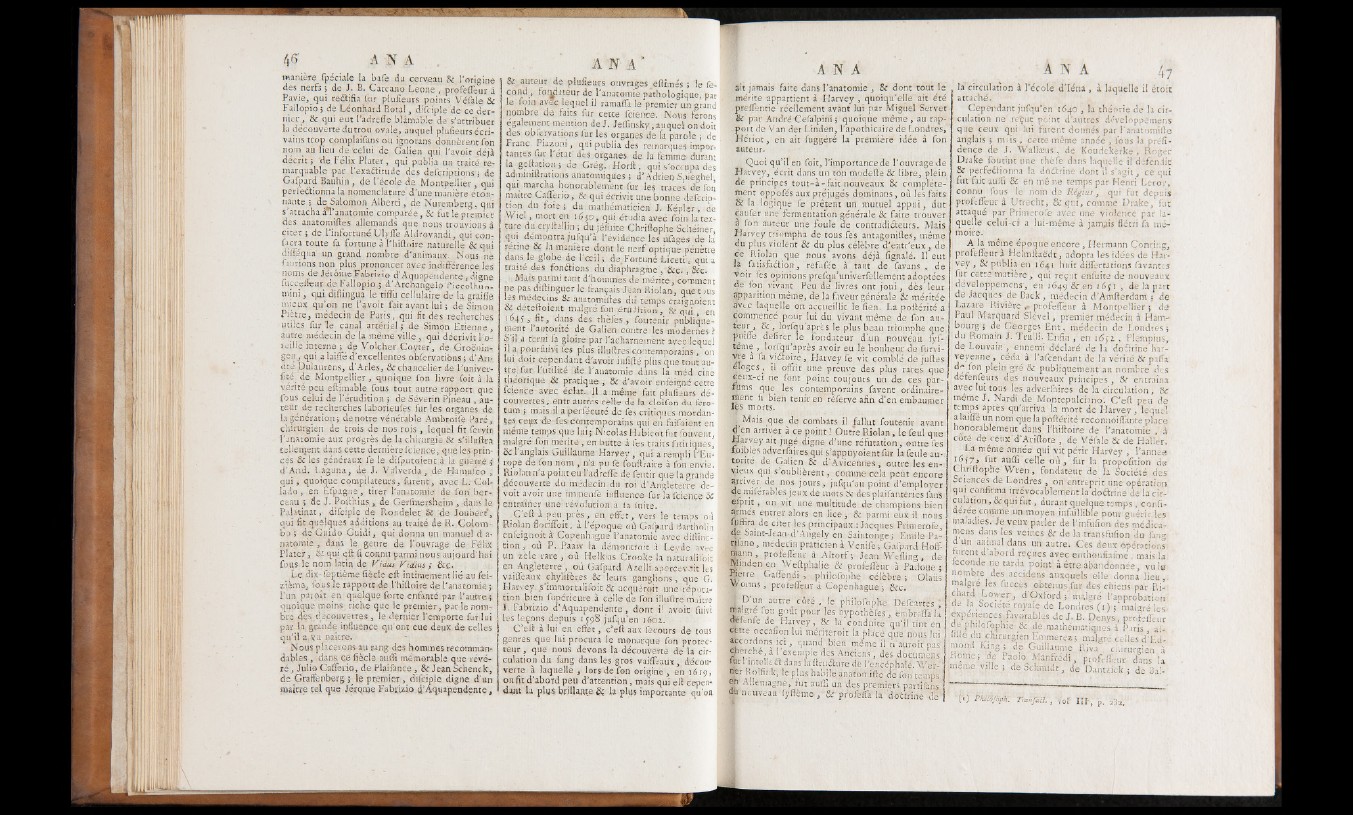 46 A N A
manière spéciale la base du cerveau & l'origine
des nerfs ; de J. B. Carcano Leone, professeur à
Pavie, qui rectifia sur plusieurs points Vésale &
Fallopio ; de Léonhard Botal, disciple de ce der-
nier, & qui eut l'adresse blâmable de s'attribuer
la découverte du trou ovale, auquel plusieurs écri-
vains trop complaisans ou ignorans donnèrent son
nom au lieu de celui de Galien qui l'avoit déjà
décrit ; de Félix Plater, qui publia un traité re-
marquable par l'exactitude des descriptions ; de
Gaspard Bauhin, de l'école de Montpellier, qui
perfectionna la nomenclature d'une manière éton-
nante ; de Salomon Alberti, de Nuremberg, qui
s'attacha à l'anatomie comparée, & fut le premier
des anatomistes allemands que nous trouvions à
citer ; de l'infortuné Ulysse Aldrovandi, qui con-
sacra toute sa fortune à l'histoire naturelle & qui
disséqua un grand nombre d'animaux. Nous ne
saurions non plus prononcer avec indifférence les
noms de Jérôme Fabrizio d'Aquapendente, digne
successeur de Fallopio ; d'Archangelo Piccolhuo-
mini, qui distingua le tissu cellulaire de la graisse
mieux qu'on ne l'avoit fait avant lui ; de Simon
Piètre, médecin de Paris, qui fit des recherches
utiles sur le canal artériel ; de Simon Etienne,
autre médecin de la même ville, qui décrivit l'o-
reille interne ; de Volcher Coyter, de Groënin-
gen, qui a laissé d'excellentes observations ; d'An-
dré Dulaurens, d'Arles, & chancelier de l'univer-
sité de Montpellier, quoique son livre soit à la
vérité peu estimable sous tout autre rapport que
sous celui de l'érudition ; de Séverin Pineau, au-
teur de recherches laborieuses sur les organes de
la génération ; de notre vénérable Ambroise Paré,
chirurgien de trois de nos rois, lequel fit servir
l'anatomie aux progrès de la chirurgie & s'illustra
tellement dans cette dernière science, que les prin-
ces & les généraux se le disputoient à la guerre ;
d'And. Laguna, de J. Valverda, de Hunnico,
qui, quoique compilateurs, furent, avec L. Col-
lado, en Espagne, tirer l'anatomie de son ber-
ceau ; de J. Posthius, de Germersheim, dans le
Palatinat, disciple de Rondelet & de Joubert,
qui fit quelques additions au traité de R. Colom-
bo ; de Guido Guidi, qui donna un manuel d'a-
natomie, dans le genre de l'ouvrage de Félix
Plater, & qui est si connu parmi nous aujourd'hui
sous le nom latin de Vidus Vidius ; &c.
Le dix-septième siècle est intimement lié au sei-
zième, sous le rapport de l'histoire de l'anatomie ;
l'un paroît en quelque sorte enfanté par l'autre ;
quoique moins riche que le premier, par le nom-
bre des découvertes, le dernier l'emporte sur lui
par la grande influence qu'ont eue deux de celles
qu'il a vu naître.
Nous placerons au rang des hommes recomman-
dables, dans ce siècle aussi mémorable que révé-
ré, Julio Casserio, de Plaisance, & Jean Schenck,
de Graffenberg ; le premier, disciple digne d'un
maître tel que Jérôme Fabrizio d'Aquapendente,
A N A
& auteur de plusieurs ouvrages estimés ; le se-
cond, fondateur de l'anatomie pathologique, par
le soin avec lequel il ramassa le premier un grand
nombre de faits sur cette science. Nous ferons
également mention de J. Jessinsky, auquel on doit
des observations sur les organes de la parole ; de
Franc Piazoni, qui publia des remarques impor-
tantes sur l'état des organes de la femme durant
la gestation ; de Grég. Horst, qui s'occupa des
administrations anatomiques ; d'Adrien Spieghel,
qui marcha honorablement sur les traces de son
maître Casserio, & qui écrivit une bonne descrip-
tion du foie ; du mathématicien J. Képler, de
Wiel, mort en 1630, qui étudia avec soin la tex-
ture du crystallin ; du jésuite Christophe Scheiner,
qui démontra jusqu'à l'évidence les usages de la
rétine & la manière dont le nerf optique pénètre
dans le globe de l'œil, de Fortuné Liceti, qui a
traité des fonctions du diaphragme, &c., &c.
Mais parmi tant d'hommes de mérite, comment
ne pas distinguer le français Jean Riolan, que tous
les médecins & anatomistes du temps craignoient
& détestoient malgré son érudition, & qui, en
1645, fit, dans des thèses, soutenir publique-
ment l'autorité de Galien contre les modernes ?
S'il a terni sa gloire par l'acharnement avec lequel
il a poursuivi les plus illustres contemporains, on
lui doit cependant d'avoir insisté plus que tout au-
tre sur l'utilité de l'anatomie dans la médecine
théorique & pratique, & d'avoir enseigné cette
science avec éclat. Il a même fait plusieurs dé-
couvertes, entr'autres celle de la cloison du scro-
tum ; mais il a persécuté de ses critiques mordan-
tes ceux de ses contemporains qui en faisoient en
même temps que lui ; Nicolas Habicot fut souvent,
malgré son mérite, en butte à ses traits satiriques,
& l'anglais Guillaume Harvey, qui a rempli l'Eu-
rope de son nom, n'a pu se soustraire à son envie.
Riolan n'a point eu l'adresse de sentir que la grande
découverte du médecin du roi d'Angleterre de-
voit avoir une immense influence sur la science &
entraîner une révolution à sa suite.
C'est à peu près, en effet, vers le temps où
Riolan florissoit, à l'époque où Gaspard Bartholin
enseignoit à Copenhague l'anatomie avec distinc-
tion, où P. Paaw la démontroit à Leyde avec
un zèle rare, où Helkias Crooke la naturalisoit
en Angleterre, où Gaspard Azelli apercevoit les
vaisseaux chylifères & leurs ganglions, que G.
Harvey s'immortalisoit & acquéroit une réputa-
tion bien supérieure à celle de son illustre maître
J. Fabrizio d'Aquapendente, dont il avoit suivi
les leçons depuis 1598 jusqu'en 1602.
C'est à lui en effet, c'est aux secours de tous
genres que lui procura le monarque son protec-
teur, que nous devons la découverte de la cir-
culation du sang dans les gros vaisseaux, décou-
verte à laquelle, lors de son origine, en 1619,
on fit d'abord peu d'attention, mais qui est cepen-
dant la plus brillante & la plus importante qu'on
A N A
ait jamais faite dans l'anatomie, & dont tout le
mérite appartient à Harvey, quoiqu'elle ait été
pressentie réellement avant lui par Miguel Servet
& par André Césalpini ; quoique même, au rap-
port de Van der Linden, l'apothicaire de Londres,
Hériot, en ait suggéré la première idée à son
auteur.
Quoi qu'il en soit, l'importance de l'ouvrage de
Harvey, écrit dans un ton modeste & libre, plein
de principes tout-à-fait nouveaux & complète-
ment opposés aux préjugés dominans, où les faits
& la logique se prêtent un mutuel appui, dut
causer une fermentation générale & faire trouver
à son auteur une foule de contradicteurs. Mais
Harvey triompha de tous ses antagonistes, même
du plus violent & du plus célèbre d'entr'eux, de
ce Riolan que nous avons déjà signalé. Il eut
la satisfaction, refusée à tant de savans, de
voir ses opinions presqu'universellement adoptées
de son vivant. Peu de livres ont joui, dès leur
apparition même, de la faveur générale & méritée
avec laquelle on accueillit le sien. La postérité a
commencé pour lui du vivant même de son au-
teur, &c, lorsqu'après le plus beau triomphe que
puisse desirer le fondateur d'un nouveau sys-
tème, lorsqu'après avoir eu le bonheur de survi-
vre à sa victoire, Harvey se vit comblé de justes
éloges, il offrit une preuve des plus rares que
ceux-ci ne sont point toujours un de ces par-
fums que les contemporains savent ordinaire-
ment si bien tenir en réserve afin d'en embaumer
les morts.
Mais que de combats il fallut soutenir avant
d'en arriver à ce point ! Outre Riolan, le seul que
Harvey ait jugé digne d'une réfutation, outre les
foibles adversaires qui s'appuyoient sur la seule au-
torité de Galien & d'Avicennes, outre les en-
vieux qui s'oublièrent, comme cela peut encore
arriver de nos jours, jusqu'au point d'employer
de misérables jeux de mots & des plaisanteries sans
esprit, on vit une multitude de champions bien
armés entrer alors en lice, & parmi eux il nous
suffira de citer les principaux : Jacques Primerose,
de Saint-Jean-d'Angely en Saintonge ; Emile Pa-
risano, médecin praticien à Venise ; Gaspard Hoff-
mann, professeur à Altorf ; Jean Wesling, de
Minden en Westphalie & professeur à Padoue ;
Pierre Gassendi, philosophe célèbre ; Olaus
Worms, professeur à Copenhague ; &c.
D'un autre côté, le philosophe Descartes,
malgré son goût pour les hypothèses, embrassa la
défense de Harvey, & la conduite qu'il tint en
cette occasion lui mériteroit la place que nous lui
accordons ici, quand bien même il n'auroit pas
cherché, à l'exemple des Anciens, des documens
sur l'intellect dans la structure de l'encéphale. Wer-
ner Rolfink, le plus habile anatomiste de son temps
en Allemagne, fut aussi un des premiers partisans
du nouveau système, & professa la doctrine de
A N A 47
la circulation à l'école d'Iéna, à laquelle il étoit
attaché.
Cependant jusqu'en 1640, la théorie de la cir-
culation ne reçut point d'autres développemens
que ceux qui lui furent donnés par l'anatomiste
anglais ; mais, cette même année, sous la prési-
dence de J. Wallæus, de Koudekerke, Roger
Drake soutint une thèse dans laquelle il défendit
& perfectionna la doctrine dont il s'agit, ce qui
fut fait aussi & en même temps par Henri Leroy,
connu sous le nom de Régius, qui fut depuis
professeur à Utrecht, & qui, comme Drake, fut
attaqué par Primerose avec une violence par la-
quelle celui-ci a lui-même à jamais flétri sa mé-
moire.
A la même époque encore, Hermann Conring,
professeur à Helmstaëdt, adopta les idées de Har-
vey, & publia en 1641 huit dissertations savantes
sur cette matière, qui reçut ensuite de nouveaux
développemens, en 1649 & en 1651, de la part
de Jacques de Back, médecin d'Amsterdam ; de
Lazare Rivière, professeur à Montpellier ; de
Paul Marquard Slégel, premier médecin à Ham-
bourg ; de Georges Ent, médecin de Londres ;
du Romain J. Trulli. Enfin, en 1652, Plempius,
de Louvain, ennemi déclaré de la doctrine har-
veyenne, céda à l'ascendant de la vérité & passa
de son plein gré & publiquement au nombre des
défenseurs des nouveaux principes, & entraîna
avec lui tous les adversaires de la circulation, &
même J. Nardi de Montepulciano. C'est peu de
temps après qu'arriva la mort de Harvey, lequel
a laissé un nom que la postérité reconnoissante place
honorablement dans l'histoire de l'anatomie, à
côté de ceux d'Aristote, de Vésale & de Haller.
La même année qui vit périr Harvey, l'année
1657, fut aussi celle où, sur la proposition de
Christophe Wren, fondateur de la Société des
Sciences de Londres, on entreprit une opération
qui confirma irrévocablement la doctrine de la cir-
culation, & qui fut, durant quelque temps, consi-
dérée comme un moyen infaillible pour guérir les
maladies. Je veux parler de l'infusion des médica-
mens dans les veines & de la transfusion du sang
d'un animal dans un autre. Ces deux opérations
furent d'abord reçues avec enthousiasme, mais la
seconde ne tarda point à être abandonnée, vu le
nombre des accidens auxquels elle donna lieu,
malgré les succès obtenus sur des chiens par Ri-
chard Lower, d'Oxford ; malgré l'approbation
de la Société royale de Londres (1) ; malgré les
expériences favorables de J. B. Denys, professeur
de philosophie & de mathématiques à Paris, as-
sisté du chirurgien Emmerez ; malgré celles d'Ed-
mond King ; de Guillaume Riva, chirurgien à
Rome ; de Paolo Manfredi, professeur dans la
même ville ; de Schmidt, de Dantzick ; de Bal-
(1) Philosoph. Transact., vol. III, p. 232.